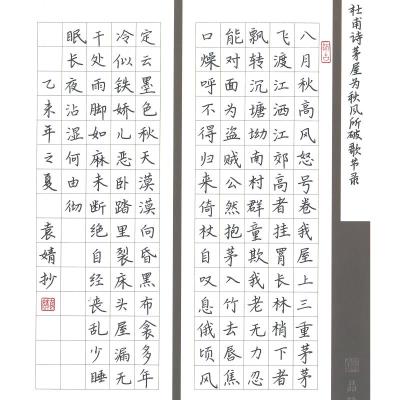 杜甫诗茅屋为秋风所破歌节录
八月秋高风怒号卷我屋上三重茅茅
飞渡江洒江郊高者挂罥长林梢下者
飘转沉塘坳南村群童欺我老无力忍
能对面为盗贼公然抱茅入竹去唇焦
口燥呼不得归来倚杖自叹息俄顷风
定云墨色秋天漠漠向昏黑布衾多年
冷似铁娇儿恶卧踏里裂床头屋漏无
干处雨脚如麻未断绝自经丧乱少睡
眠长夜沾湿何由彻
乙未年之夏 袁婧抄